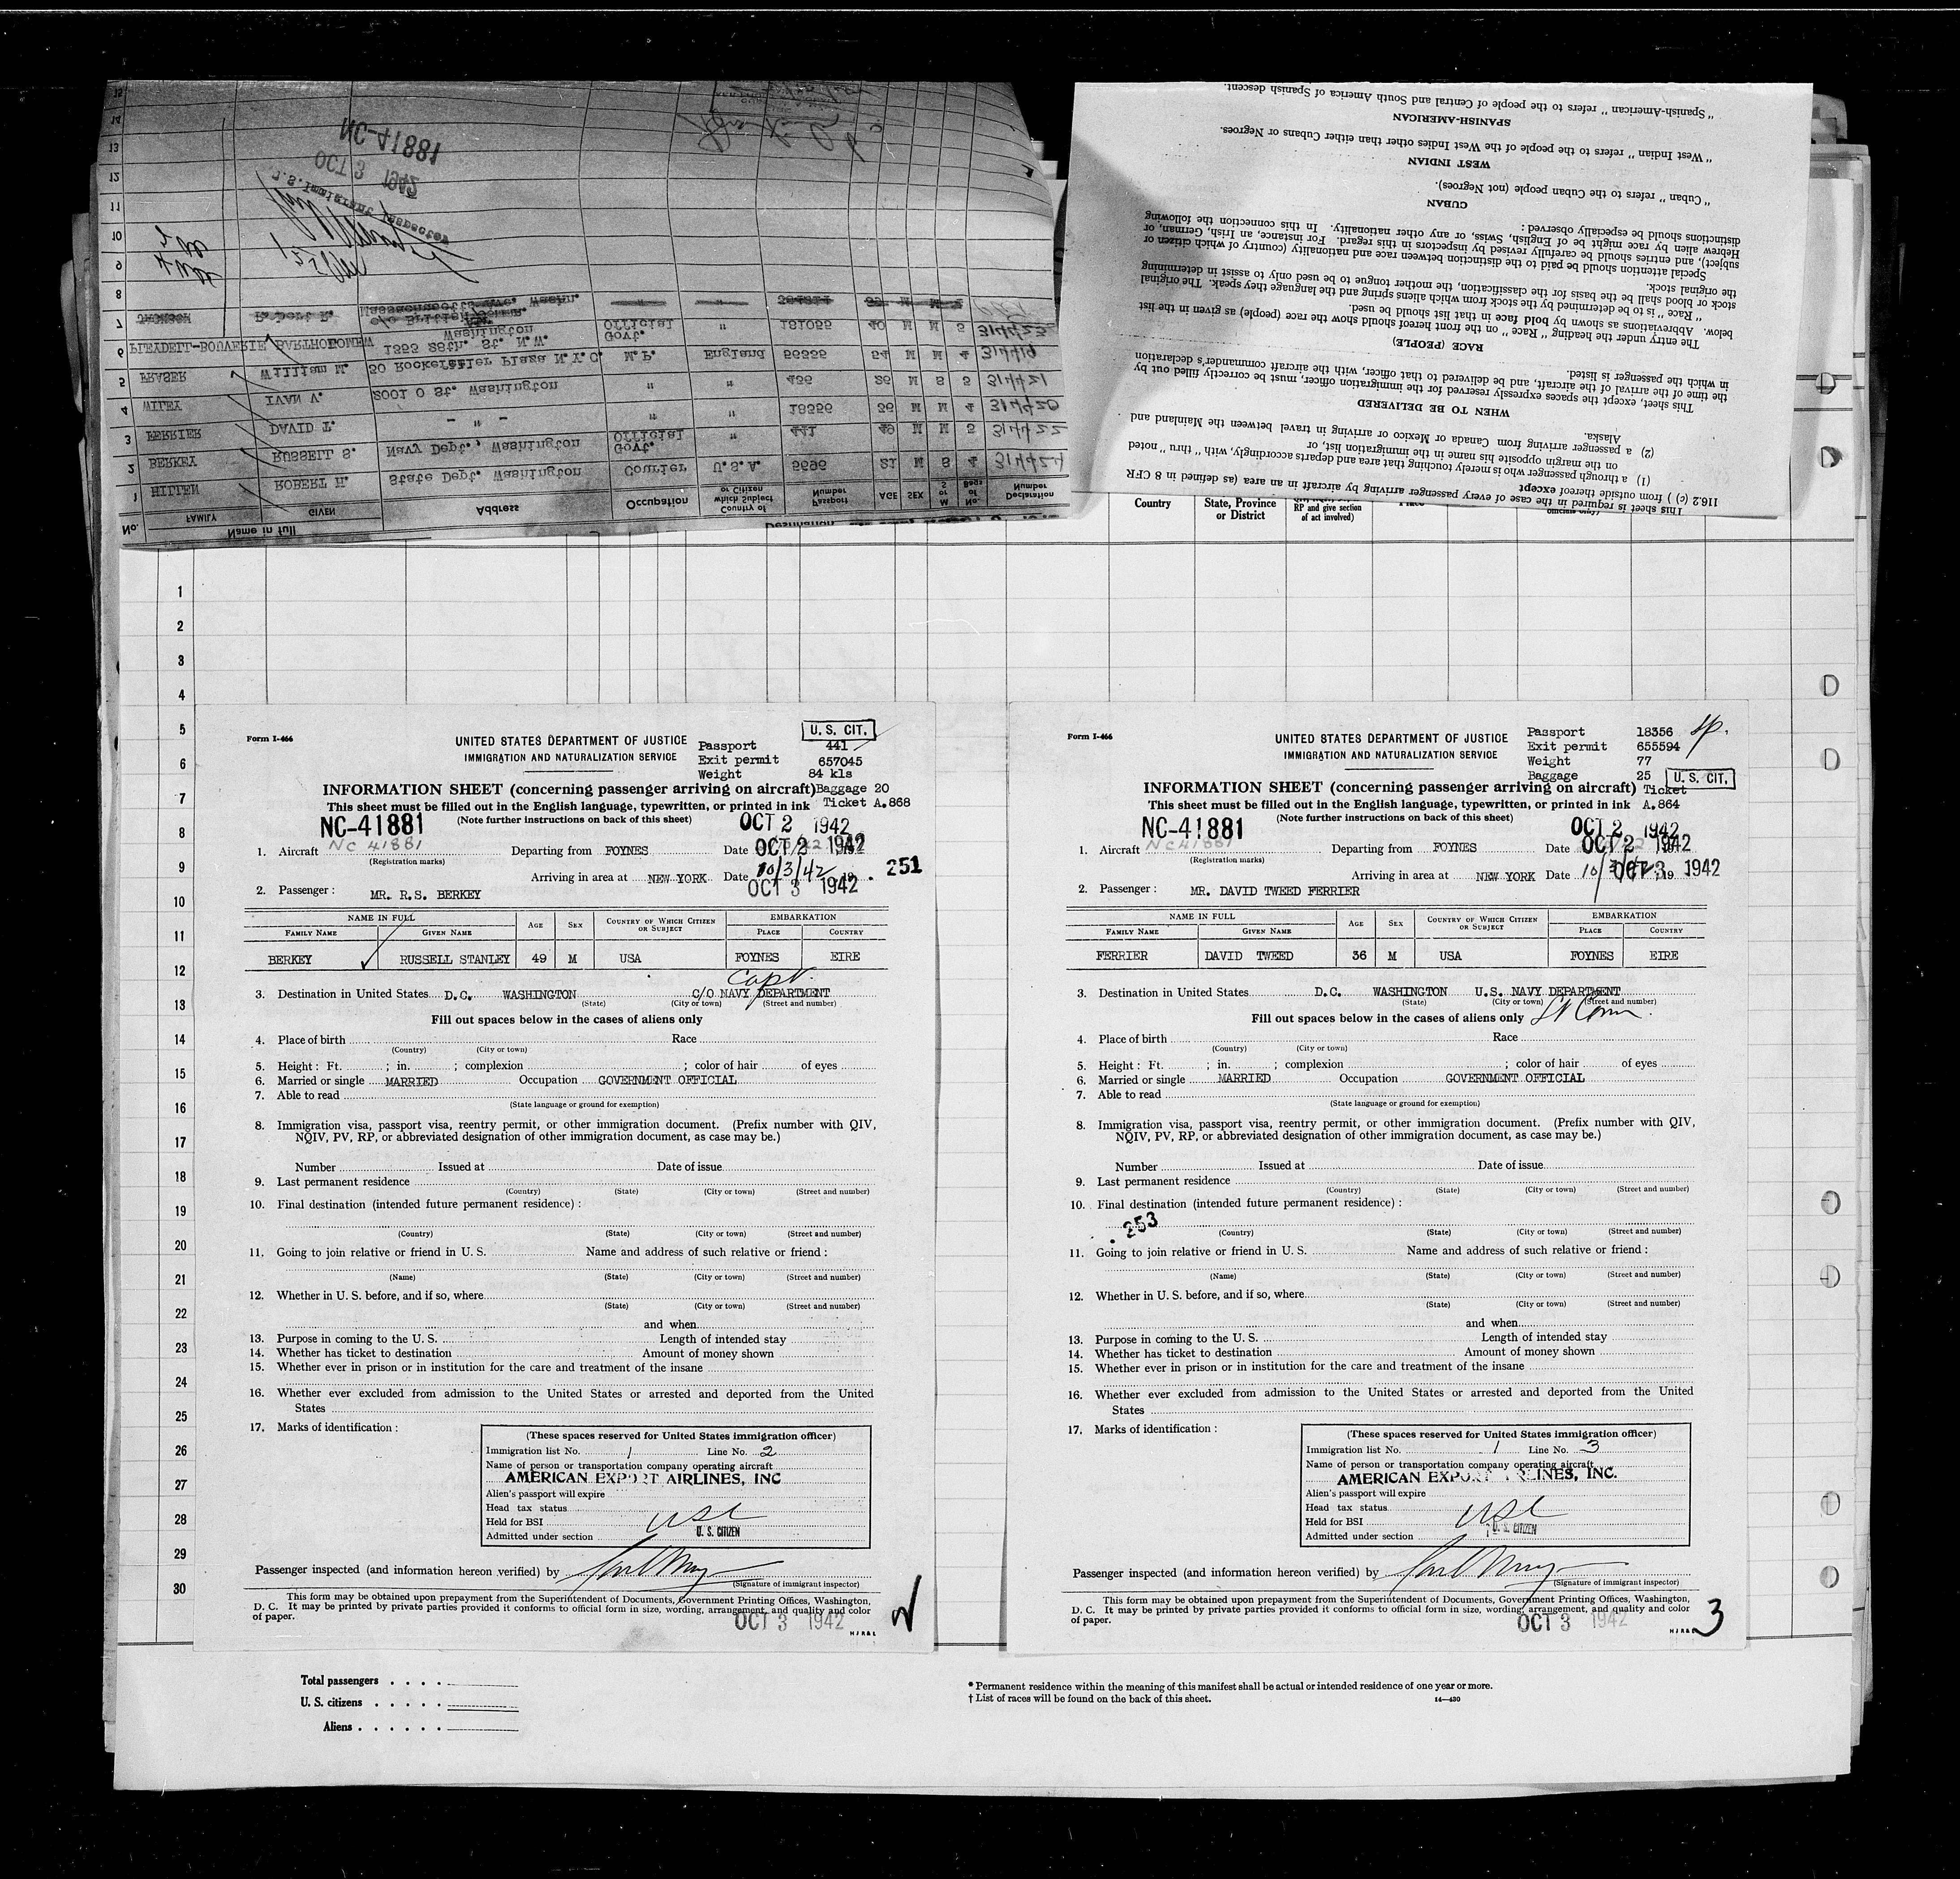 Form I-466
U. S. CIT.
UNITED STATES DEPARTMENT OF JUSTICE
IMMIGRATION AND NATURALIZATION SERVICE
Passport 441
Exit permit 657045
Weight 84 kls
INFORMATION SHEET (concerning passenger arriving on aircraft) Baggage 20
This sheet must be filled out in the English language, typewritten, or printed in ink Ticket A.868
(Note further instructions on back of this sheet)
NC-41881 OCT 2 1942
1. Aircraft NC 41881 Departing from FOYNES Date OCT 2 1942
(Registration marks)
Arriving in area at NEW YORK Date 10/3/42 19 . 251
OCT 3 1942
2. Passenger : MR. R.S. BERKEY
NAME IN FULL AGE SEX COUNTRY OF WHICH CITIZEN OR SUBJECT EMBARKATION
FAMILY NAME GIVEN NAME PLACE COUNTRY
BERKEY RUSSELL STANLEY 49 M USA FOYNES EIRE
Capt.
3. Destination in United States D.C. WASHINGTON C/O NAVY DEPARTMENT
(State) (City or town) (Street and number)
Fill out spaces below in the cases of aliens only
4. Place of birth Race
(Country) (City or town)
5. Height : Ft. ; in. ; complexion ; color of hair of eyes
6. Married or single MARRIED Occupation GOVERNMENT OFFICIAL
7. Able to read
(State language or ground for exemption)
8. Immigration visa, passport visa, reentry permit, or other immigration document. (Prefix number with QIV,
NQIV, PV, RP, or abbreviated designation of other immigration document, as case may be.)
Number Issued at Date of issue
9. Last permanent residence
(Country) (State) (City or town) (Street and number)
10. Final destination (intended future permanent residence) :
(Country) (State) (City or town) (Street and number)
11. Going to join relative or friend in U. S. Name and address of such relative or friend :
(Name) (State) (City or town) (Street and number)
12. Whether in U. S. before, and if so, where
(State) (City or town) (Street and number)
and when
13. Purpose in coming to the U. S. Length of intended stay
14. Whether has ticket to destination Amount of money shown
15. Whether ever in prison or in institution for the care and treatment of the insane
16. Whether ever excluded from admission to the United States or arrested and deported from the United
States
17. Marks of identification :
(These spaces reserved for United States immigration officer)
Immigration list No. 1 Line No. 2
Name of person or transportation company operating aircraft
AMERICAN EXPORT AIRLINES, INC
Alien's passport will expire
Head tax status
Held for BSI USC
Admitted under section U. S. CITIZEN
Passenger inspected (and information hereon verified) by
(Signature of immigrant inspector)
This form may be obtained upon prepayment from the Superintendent of Documents, Government Printing Offices, Washington,
D. C. It may be printed by private parties provided it conforms to official form in size, wording, arrangement, and quality and color
of paper. OCT 3 1942
Form I-466
UNITED STATES DEPARTMENT OF JUSTICE
IMMIGRATION AND NATURALIZATION SERVICE
Passport 18356
Exit permit 655594
Weight 77
Baggage 25 U. S. CIT.
INFORMATION SHEET (concerning passenger arriving on aircraft) Ticket
This sheet must be filled out in the English language, typewritten, or printed in ink A.864
(Note further instructions on back of this sheet)
NC-41881 OCT 2 1942
1. Aircraft NC41881 Departing from FOYNES Date OCT 2 1942
(Registration marks)
Arriving in area at NEW YORK Date OCT 3 1942
2. Passenger : MR. DAVID TWEED FERRIER
NAME IN FULL AGE SEX COUNTRY OF WHICH CITIZEN OR SUBJECT EMBARKATION
FAMILY NAME GIVEN NAME PLACE COUNTRY
FERRIER DAVID TWEED 36 M USA FOYNES EIRE
3. Destination in United States D.C. WASHINGTON U.S. NAVY DEPARTMENT
(State) (City or town) (Street and number)
Fill out spaces below in the cases of aliens only Lt Com.
4. Place of birth Race
(Country) (City or town)
5. Height : Ft. ; in. ; complexion ; color of hair of eyes
6. Married or single MARRIED Occupation GOVERNMENT OFFICIAL
7. Able to read
(State language or ground for exemption)
8. Immigration visa, passport visa, reentry permit, or other immigration document. (Prefix number with QIV,
NQIV, PV, RP, or abbreviated designation of other immigration document, as case may be.)
Number Issued at Date of issue
9. Last permanent residence
(Country) (State) (City or town) (Street and number)
10. Final destination (intended future permanent residence) :
. 253
(Country) (State) (City or town) (Street and number)
11. Going to join relative or friend in U. S. Name and address of such relative or friend :
(Name) (State) (City or town) (Street and number)
12. Whether in U. S. before, and if so, where
(State) (City or town) (Street and number)
and when
13. Purpose in coming to the U. S. Length of intended stay
14. Whether has ticket to destination Amount of money shown
15. Whether ever in prison or in institution for the care and treatment of the insane
16. Whether ever excluded from admission to the United States or arrested and deported from the United
States
17. Marks of identification :
(These spaces reserved for United States immigration officer)
Immigration list No. 1 Line No. 3
Name of person or transportation company operating aircraft
AMERICAN EXPORT AIRLINES, INC.
Alien's passport will expire
Head tax status
Held for BSI USC
Admitted under section U. S. CITIZEN
Passenger inspected (and information hereon verified) by
(Signature of immigrant inspector)
This form may be obtained upon prepayment from the Superintendent of Documents, Government Printing Offices, Washington,
D. C. It may be printed by private parties provided it conforms to official form in size, wording, arrangement, and quality and color
of paper. OCT 3 1942 3
Total passengers
U. S. citizens
Aliens
* Permanent residence within the meaning of this manifest shall be actual or intended residence of one year or more.
† List of races will be found on the back of this sheet. 14—430
Country
State, Province or District
RP and give section of act involved)
1
2
3
4
5
6
7
8
9
10
11
12
13
14
15
16
17
18
19
20
21
22
23
24
25
26
27
28
29
30
This sheet is required in the case of every passenger arriving by aircraft in an area (as defined in 8 CFR
116.2 (c) ) from outside thereof except
(1) a through passenger who is merely touching that area and departs accordingly, with "thru" noted
on the margin opposite his name in the immigration list, or
(2) a passenger arriving from Canada or Mexico or arriving in travel between the Mainland and
Alaska.
WHEN TO BE DELIVERED
This sheet, except the spaces expressly reserved for the immigration officer, must be correctly filled out by
the time of the arrival of the aircraft, and be delivered to that officer, with the aircraft commander's declaration
in which the passenger is listed.
RACE (PEOPLE)
The entry under the heading "Race" on the front hereof should show the race (people) as given in the list
below. Abbreviations as shown by bold face in that list should be used.
"Race" is to be determined by the stock from which aliens spring and the language they speak. The original
stock or blood shall be the basis for the classification, the mother tongue to be used only to assist in determining
the original stock.
Special attention should be paid to the distinction between race and nationality (country of which citizen or
subject), and entries should be carefully revised by inspectors in this regard. For instance, an Irish, German, or
Hebrew alien by race might be of English, Swiss, or any other nationality. In this connection the following
distinctions should be especially observed :
CUBAN
"Cuban" refers to the Cuban people (not Negroes).
WEST INDIAN
"West Indian" refers to the people of the West Indies other than either Cubans or Negroes.
SPANISH-AMERICAN
"Spanish-American" refers to the people of Central and South America of Spanish descent.
No. Name in full FAMILY GIVEN Address Occupation Country of which Subject or Citizen Passport Number AGE SEX S or W No. of Bags Declaration Number
1 HITTEN ROBERT H. State Dept. Washington Courier U.S.A. 5696 21 M S 4 314424
2 BERKEY RUSSELL S. Navy Dept., Washington Govt. Official " 441 49 M M 5 314422
3 FERRIER DAVID T. - " - " " 18356 36 M M 4 314420
4 WILEY IVAN V. 2001 O St. Washington " " 456 36 M S 5 314421
5 FRASER William M. 50 Rockefeller Plaza N.Y.C. M.P. England 54 M M 4 314419
6 PLEYDELL-BOUVERIE BARTHOLOMEW 1555 28th. St. N.W. Washington Govt. Official " 181055 40 M M 5 314423
7
8
9
10
11
12
13
14
15
NC-41881
OCT 3 1942
U.S. Immigrant Inspector